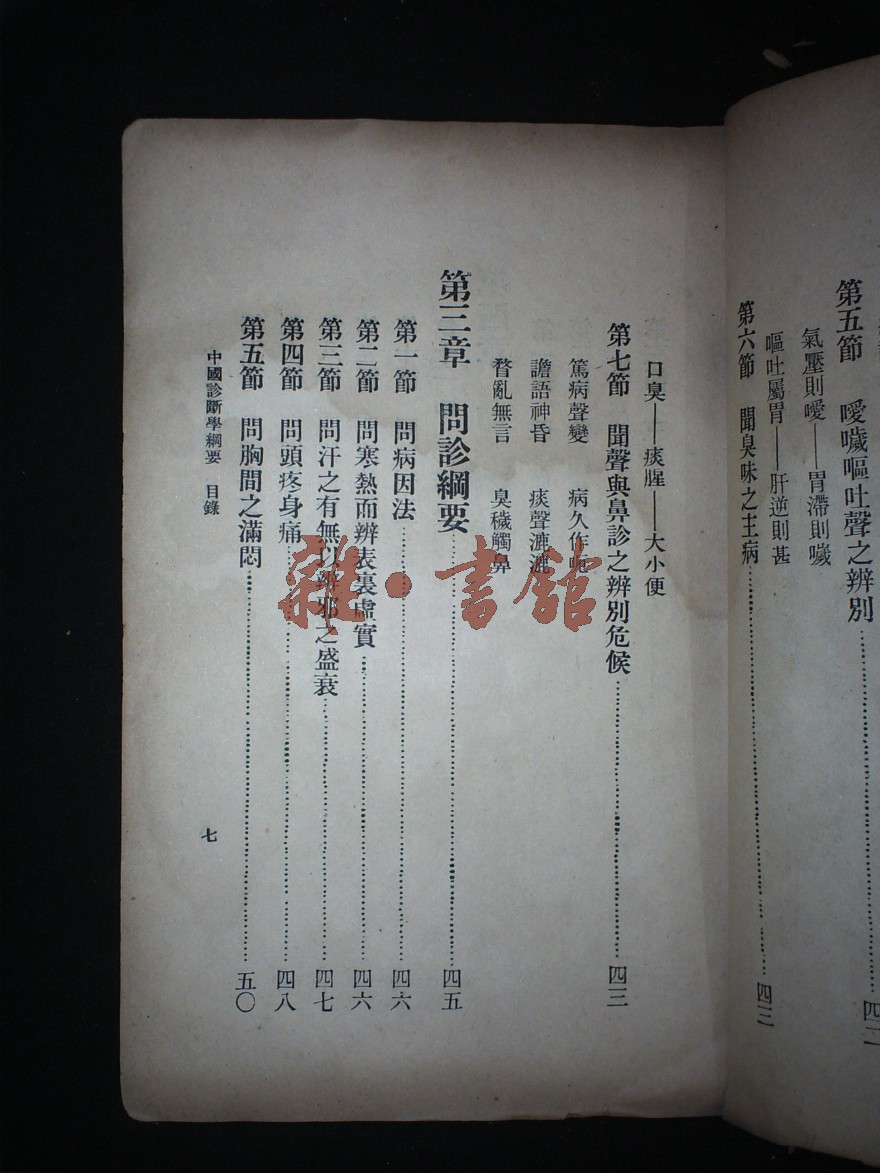 第五節　噯噦嘔吐聲之辨別……四二
氣壓則噯——胃滯則噦
嘔吐屬胃——肝逆則甚
第六節　聞臭味之主病……四三
口臭——痰腥——大小便
第七節　聞聲與鼻診之辨別危候……四三
篤病聲變　病久作呃
譫語神昏　痰聲漉漉
瞀亂無言　臭穢觸鼻
第三章　問診綱要……四五
第一節　問病因法……四六
第二節　問寒熱而辨表裏虛實……四六
第三節　問汗之有無以辨邪之盛衰……四七
第四節　問頭疼身痛……四八
第五節　問胸間之滿悶……五〇
中國診斷學綱要　目錄
七
雜·書館